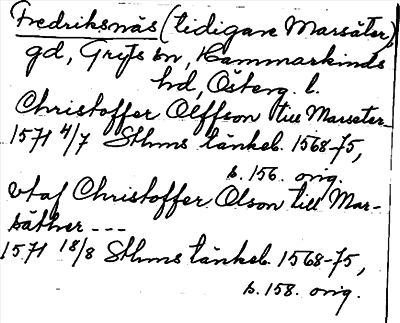 Fredriksnäs (tidigare Marsäter),
gd, Gryts sn, Hammarkinds
hd, Österg. l.
Christoffer Olffson till Marseter
1571 4/7 Sthms tänkeb. 1568-75,
s. 156. orig.
vtaf Christoffer Olson till Mar-
säther ---
1571 18/8 Sthms tänkeb. 1568-75,
s. 158. orig.